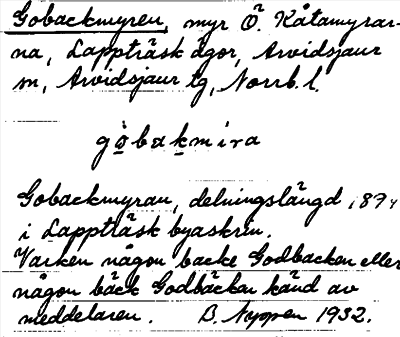 Gobackmyren, myr Ö. Kåtamyrar-
na, Lappträsk ägor, Arvidsjaur
sn, Arvidsjaur tg, Norrb. l.
gòbakmira
Gobackmyran, delningslängd 1894
i Lappträsk byaskrin.
Varken någon backe Godbacken eller
någon bäck Godbäcken känd av
meddelaren. B. Nyppen 1932.